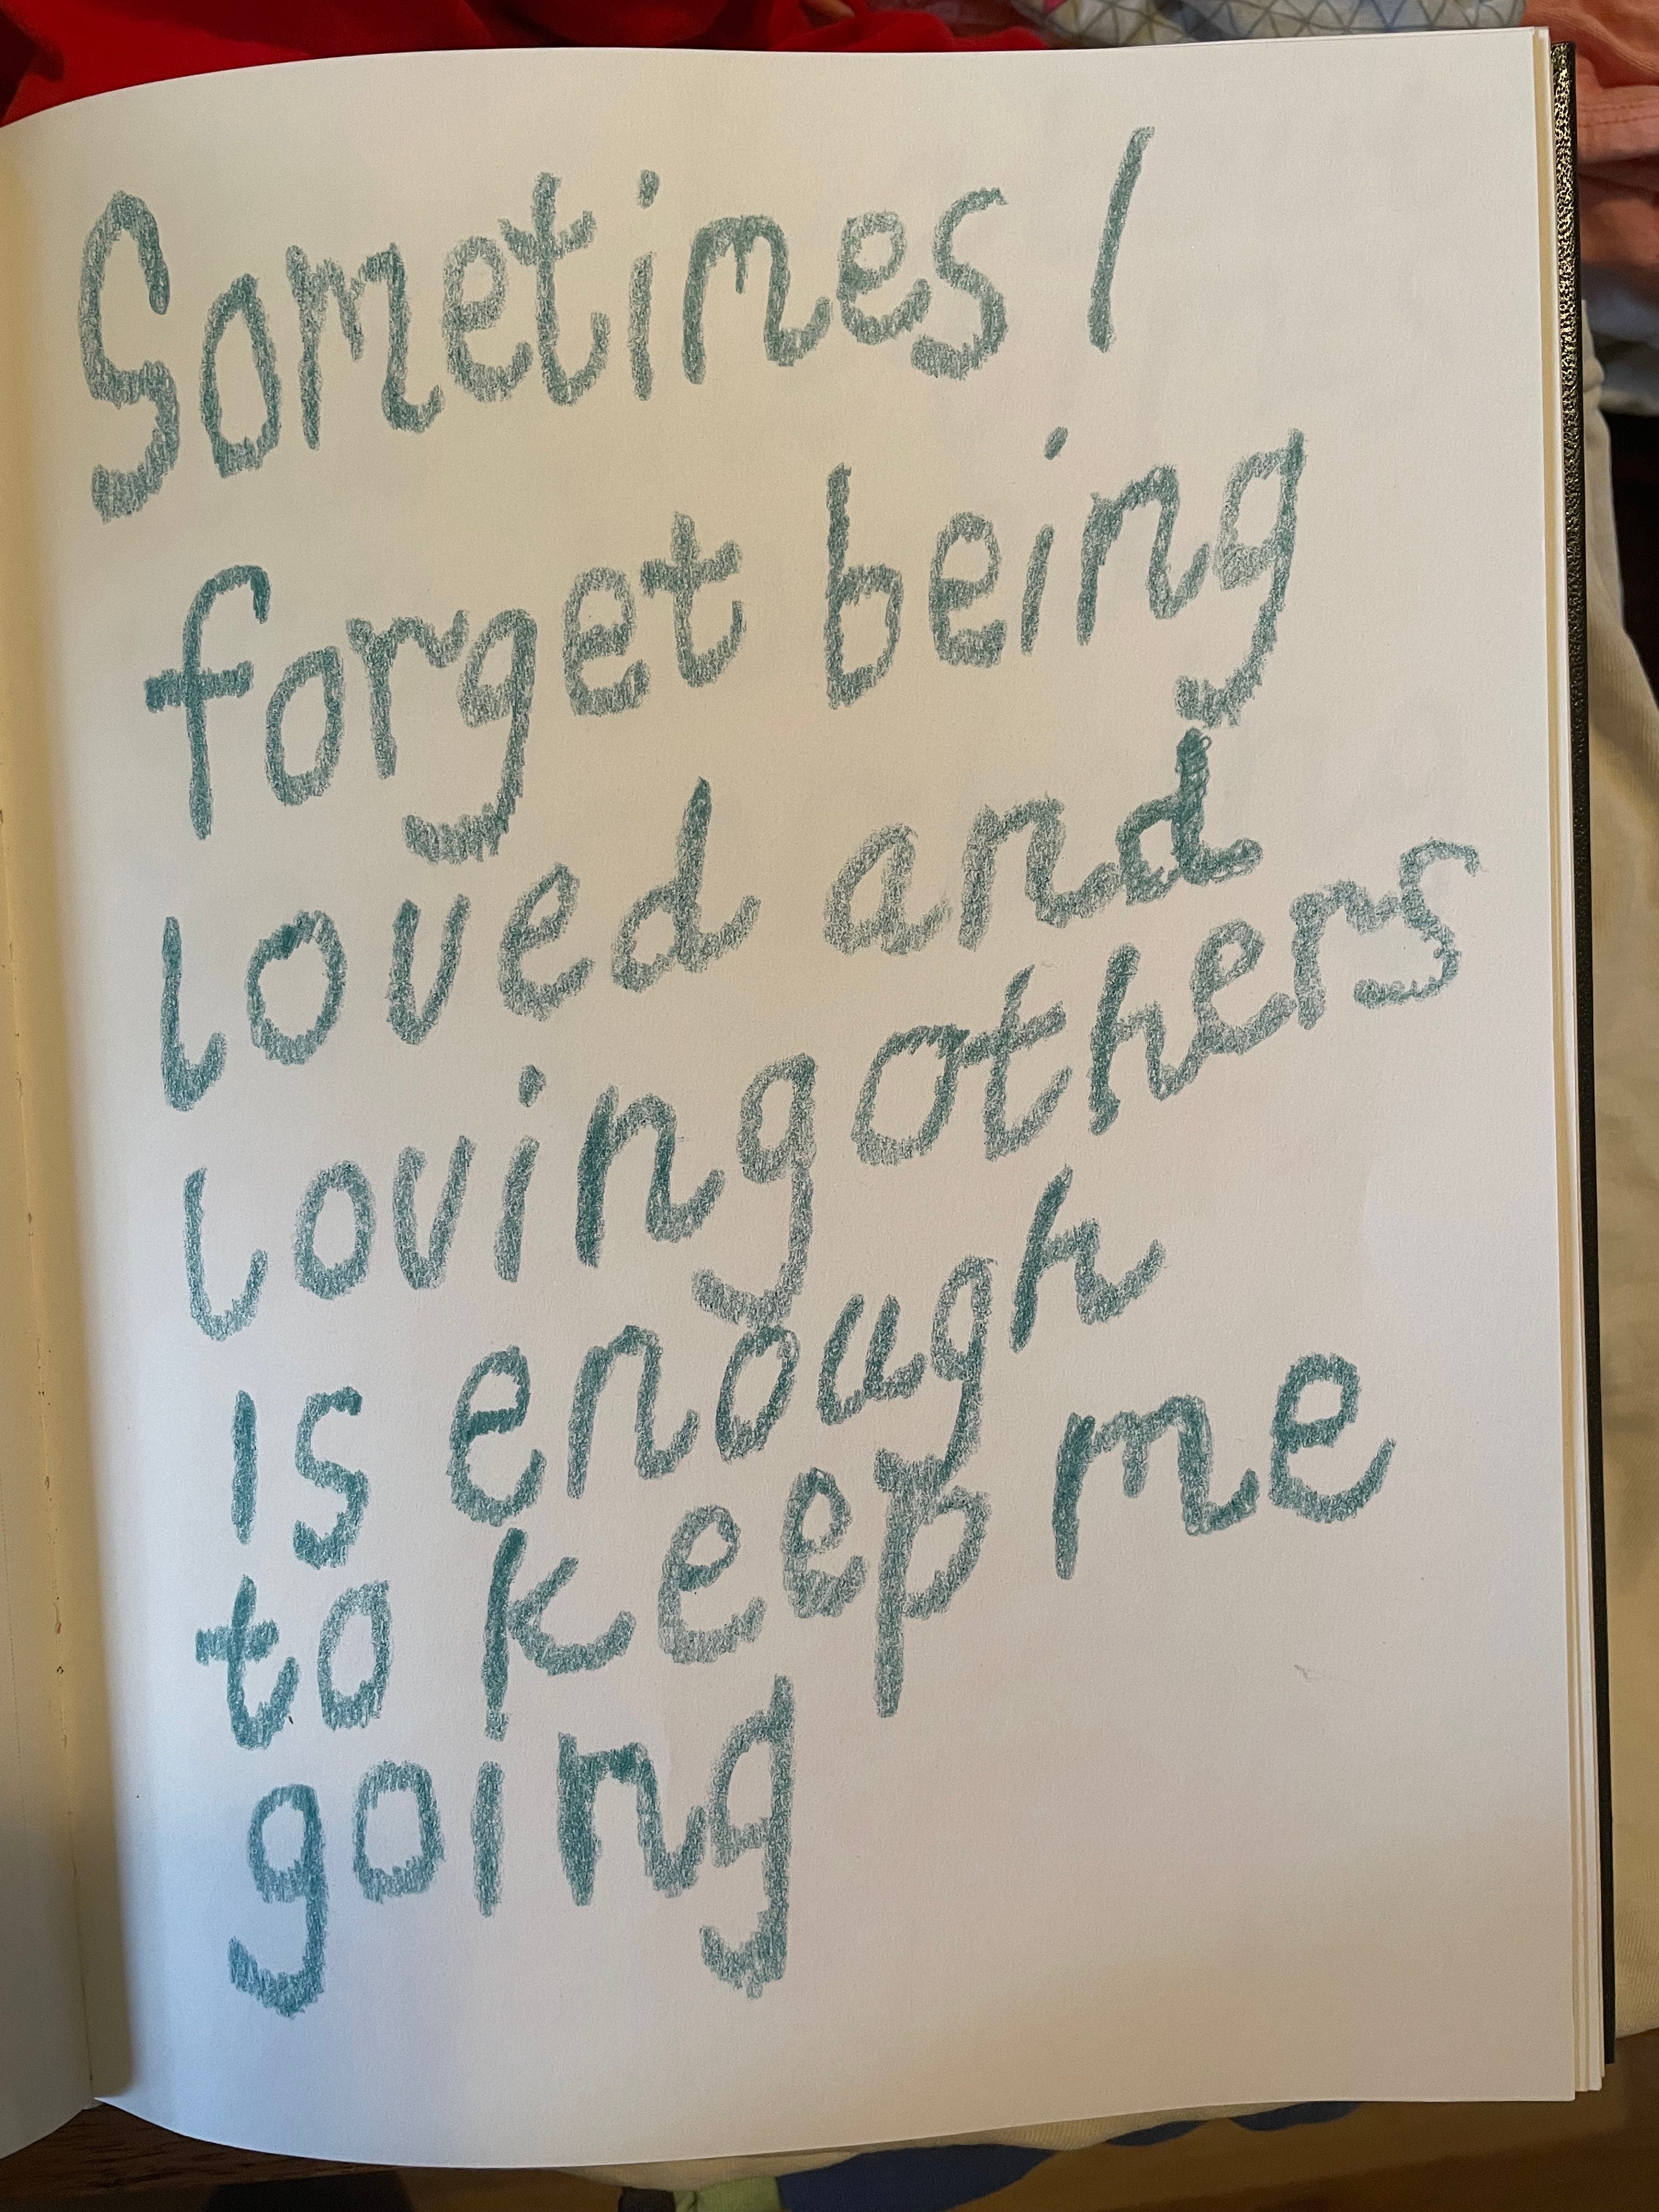 Sometimes I
forget being
loved and
loving others
is enough
to keep me
going